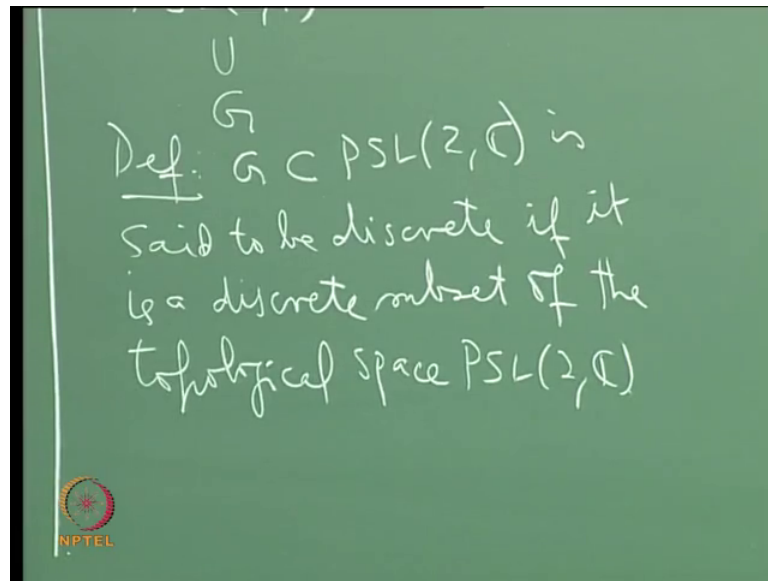 U
G
Def: G ⊂ PSL(2, ℂ) is
said to be discrete if it
is a discrete subset of the
topological space PSL(2, ℂ)
NPTEL